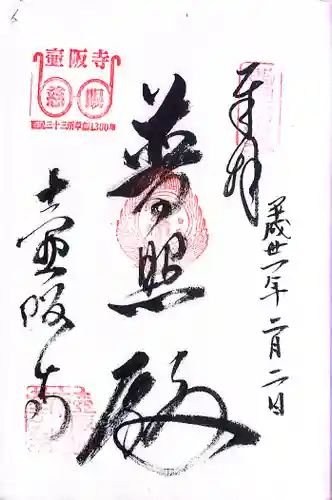 奉拝
平成卅一年二月二日
普照殿
壷阪寺
壷阪寺
慈 眼
西国三十三所草創1300年